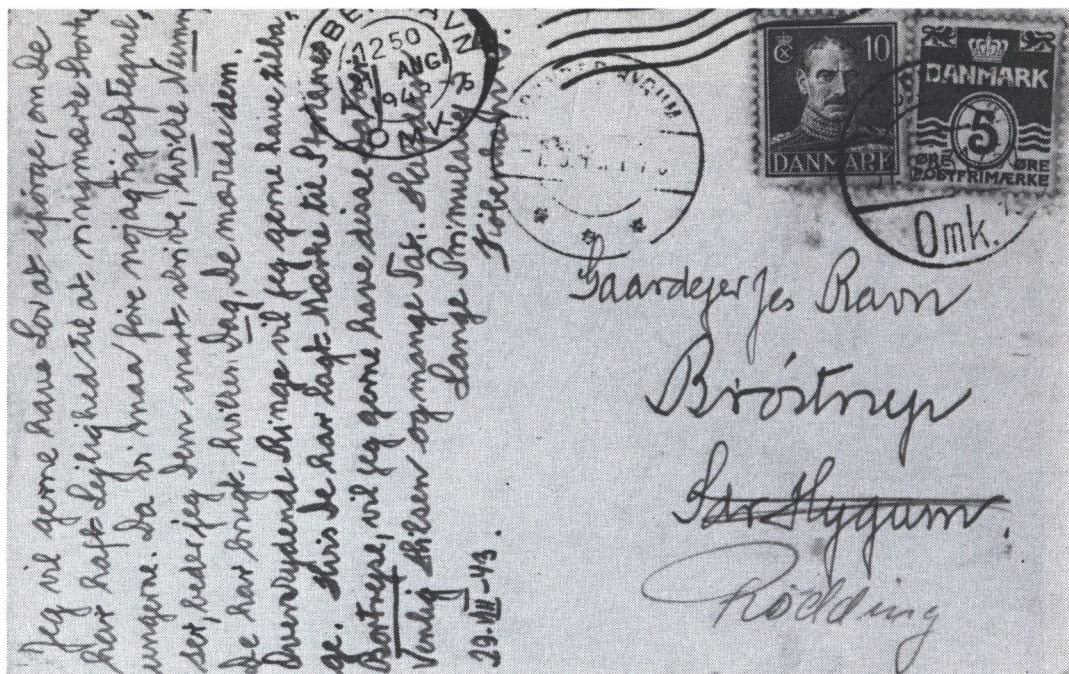 Jeg vil gerne have Lov at spørge, om De
har haft Lejlighed til at ringmærke Stork
ungerne. Da vi maa føre nøjagtige Optegnel,
ser, beder jeg Dem snart skrive, hvilke Num,
De har brugt, hvilken Dag, De mærkede dem.
Overskydende Ringe vil jeg gerne have tilba,
ge. Hvis De har lagt Mærke til Storkenes
Bortrejse, vil jeg gerne have disse
Venlig Hilsen og mange Tak.
Lange Primulavej
København
29.VIII-43.
BENHAVN
1250
AUG
10
DANMARK
DANMARK
5
ØRE ØRE
POSTFRIMÆRKE
Omk.
Gaardejer Jes Ravn
Brøstrup
Sdr Hygum.
Rødding